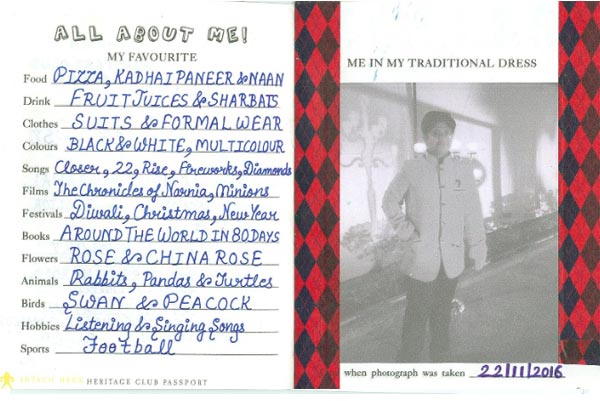 ALL ABOUT ME!
MY FAVOURITE
Food PIZZA, KADHAI PANEER & NAAN
Drink FRUIT JUICES & SHARBATS
Clothes SUITS & FORMAL WEAR
Colours BLACK & WHITE, MULTICOLOUR
Songs Closer, 22, Rise, Fireworks, Diamonds
Films The Chronicles of Narnia, Minions
Festivals Diwali, Christmas, New Year
Books AROUND THE WORLD IN 80 DAYS
Flowers ROSE & CHINA ROSE
Animals Rabbits, Pandas & Turtles
Birds SWAN & PEACOCK
Hobbies Listening & Singing Songs
Sports Football
INTACH HECS HERITAGE CLUB PASSPORT
ME IN MY TRADITIONAL DRESS
when photograph was taken 22/11/2016